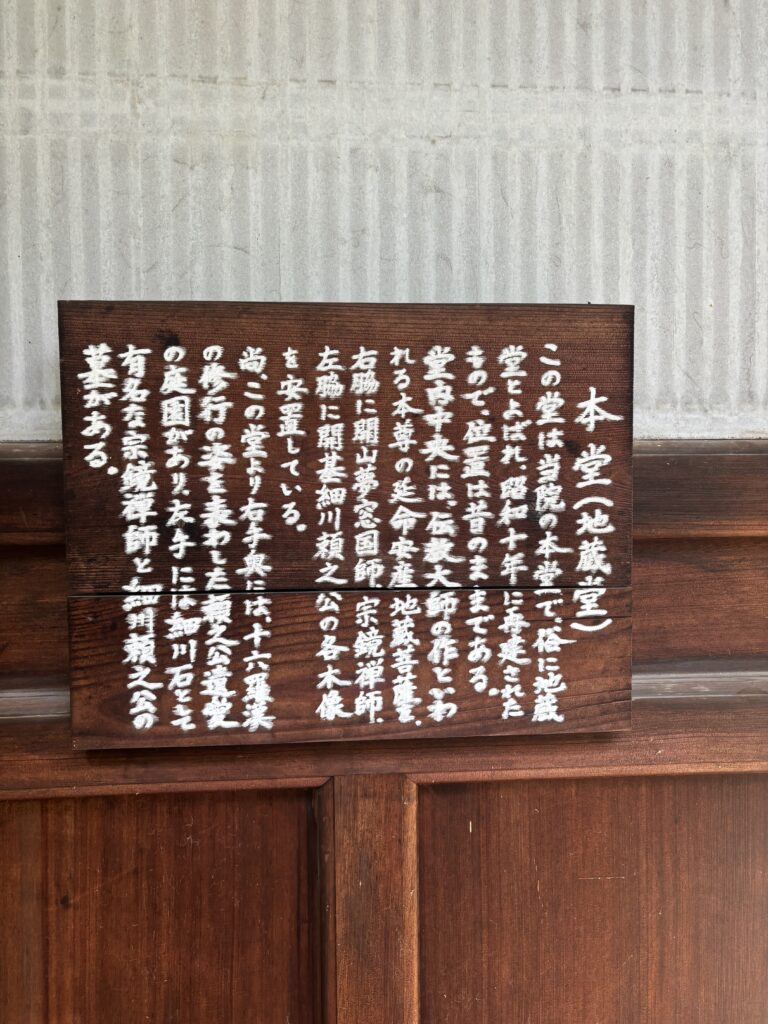 本堂(地蔵堂)
この堂は当院の本堂で、俗に地蔵
堂とよばれ、昭和十年に再建された
もので、位置は昔のままである。
堂内中央には、伝教大師の作といわ
れる本尊の延命安産 地蔵菩薩を、
右脇に開山夢窓国師 宗鏡禅師、
左脇に開基細川頼之公の各木像
を安置している。
尚、この堂より右手奥には、十六羅漢
の修行の姿を表わした頼之公遺愛
の庭園があり、左手には細川石とて
有名な宗鏡禅師と細川頼之公の
墓がある。